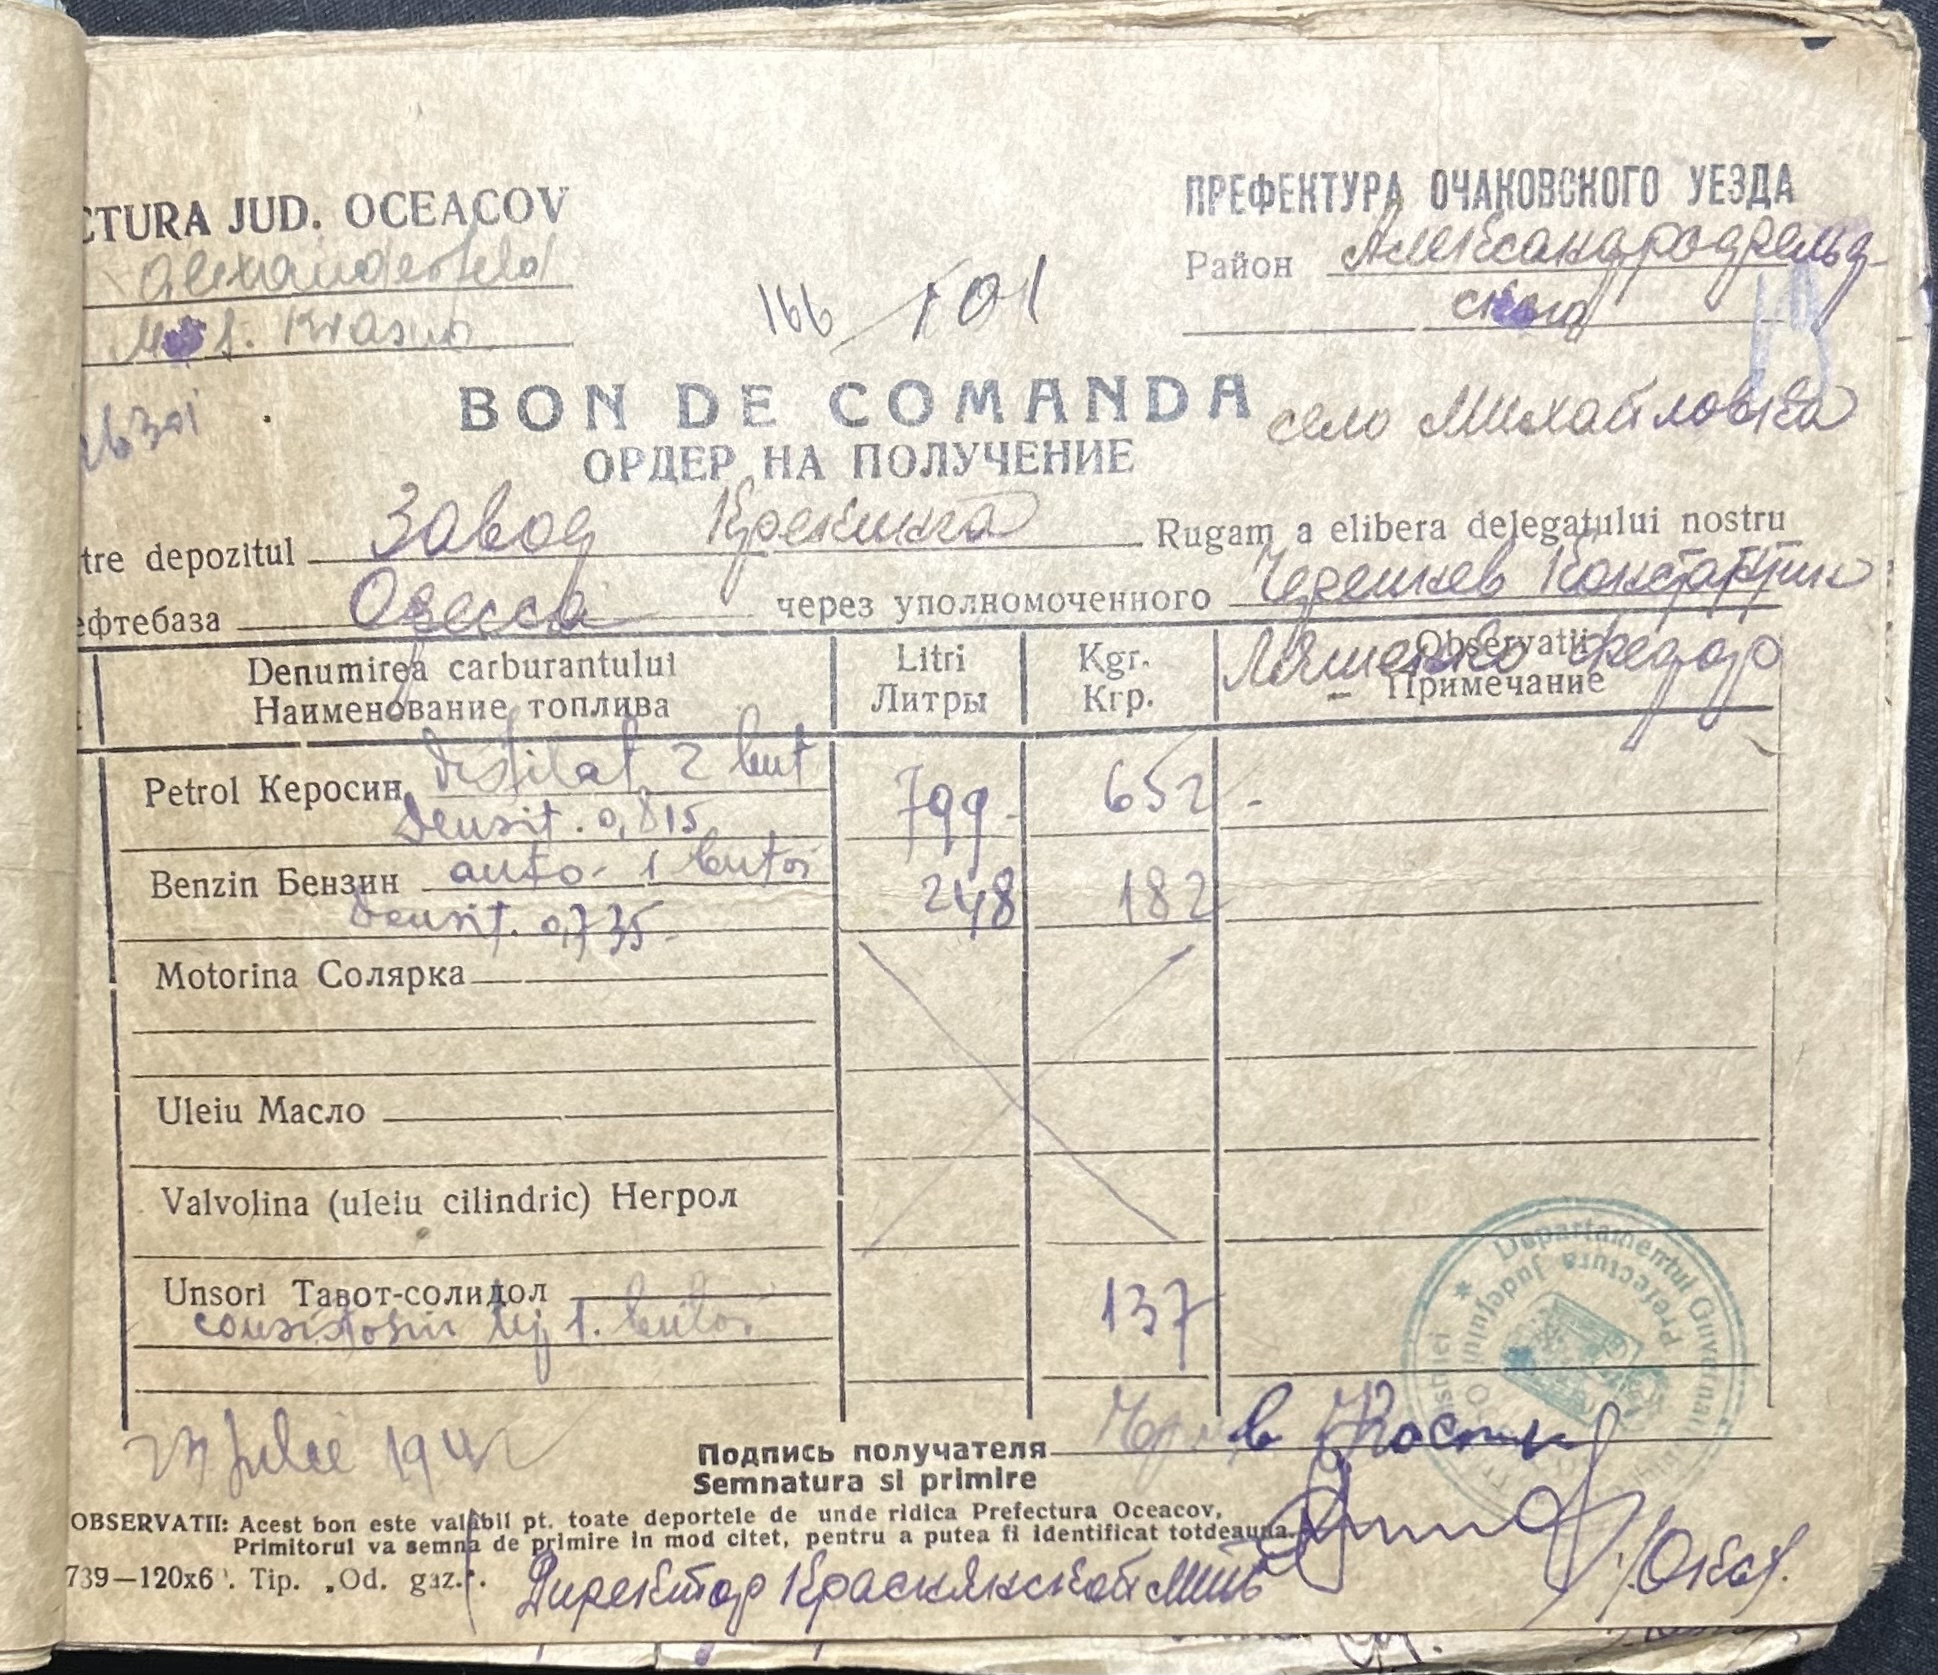 CTURA JUD. OCEACOV
ПРЕФЕКТУРА ОЧАКОВСКОГО УЕЗДА
Alexanderfeld
Район Александрофельд-
ского
166 / 101
BON DE COMANDA
село Михайловка
ОРДЕР НА ПОЛУЧЕНИЕ
tre depozitul Завод Крекинга Rugam a elibera delegatului nostru
ефтебаза Одесса через уполномоченного Константин
Ляшенко Федор
Denumirea carburantului Litri Kgr. Observatii
Наименование топлива Литры Кгр. Примечание
distilat 2 but
Petrol Керосин 799 - 652 -
Densit. 0,815
Benzin Бензин auto - 1 butoi 248 182
Densit. 0,735 -
Motorina Солярка
Uleiu Масло
Valvolina (uleiu cilindric) Негрол
Unsori Тавот-солидол 137
1. butoi
Departamentul Guvernat
Prefectura Judeţului O
Подпись получателя
Semnatura si primire
Iulie 1942
OBSERVATII: Acest bon este valabil pt. toate deportele de unde ridica Prefectura Oceacov,
Primitorul va semna de primire in mod citet, pentru a putea fi identificat totdeauna.
739—120x6 . Tip. „Od. gaz.".
Директор Краснянской